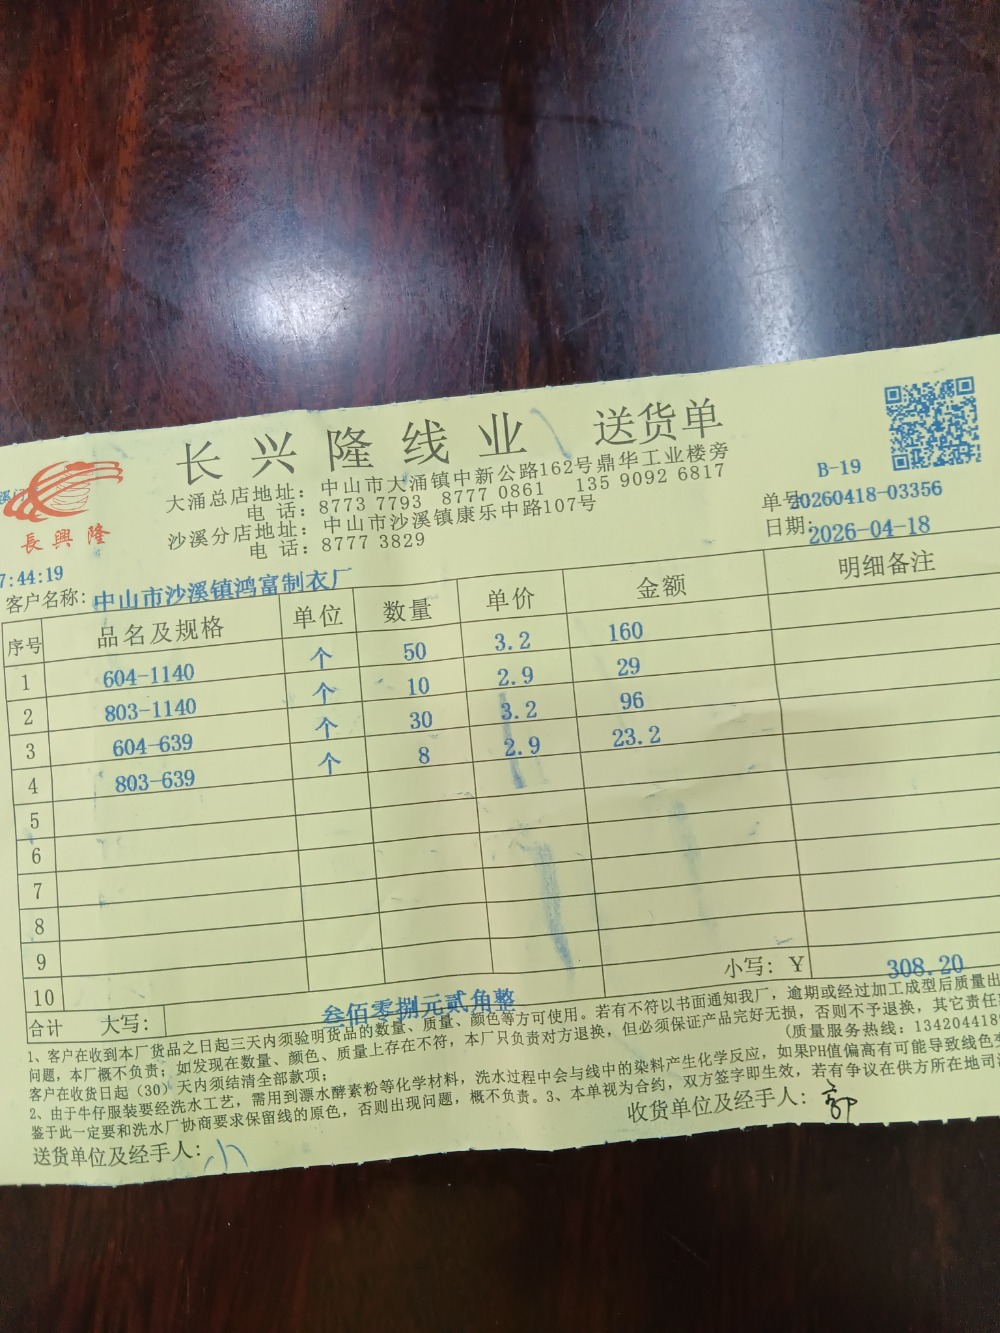 长兴隆线业 送货单
大涌总店地址：中山市大涌镇中新公路162号鼎华工业楼旁
电 话：8773 7793 8777 0861 135 9092 6817
沙溪分店地址：中山市沙溪镇康乐中路107号
电 话：8777 3829
長興隆
B-19
单号 20260418-03356
日期：2026-04-18
7:44:19
客户名称：中山市沙溪镇鸿富制衣厂
序号 品名及规格 单位 数量 单价 金额 明细备注
1 604-1140 个 50 3.2 160
2 803-1140 个 10 2.9 29
3 604-639 个 30 3.2 96
4 803-639 个 8 2.9 23.2
5
6
7
8
9
10
小写：￥ 308.20
合计 大写： 叁佰零捌元贰角整
1、客户在收到本厂货品之日起三天内须验明货品的数量、质量、颜色等方可使用。若有不符以书面通知我厂，逾期或经过加工成型后质量出
问题，本厂概不负责；如发现在数量、颜色、质量上存在不符，本厂只负责对方退换，但必须保证产品完好无损，否则不予退换，其它责任
客户在收货日起（30）天内须结清全部款项；
(质量服务热线：134204418
2、由于牛仔服装要经洗水工艺，需用到漂水酵素粉等化学材料，洗水过程中会与线中的染料产生化学反应，如果PH值偏高有可能导致线色变
鉴于此一定要和洗水厂协商要求保留线的原色，否则出现问题，概不负责。3、本单视为合约，双方签字即生效，若有争议在供方所在地司
送货单位及经手人：小
收货单位及经手人：